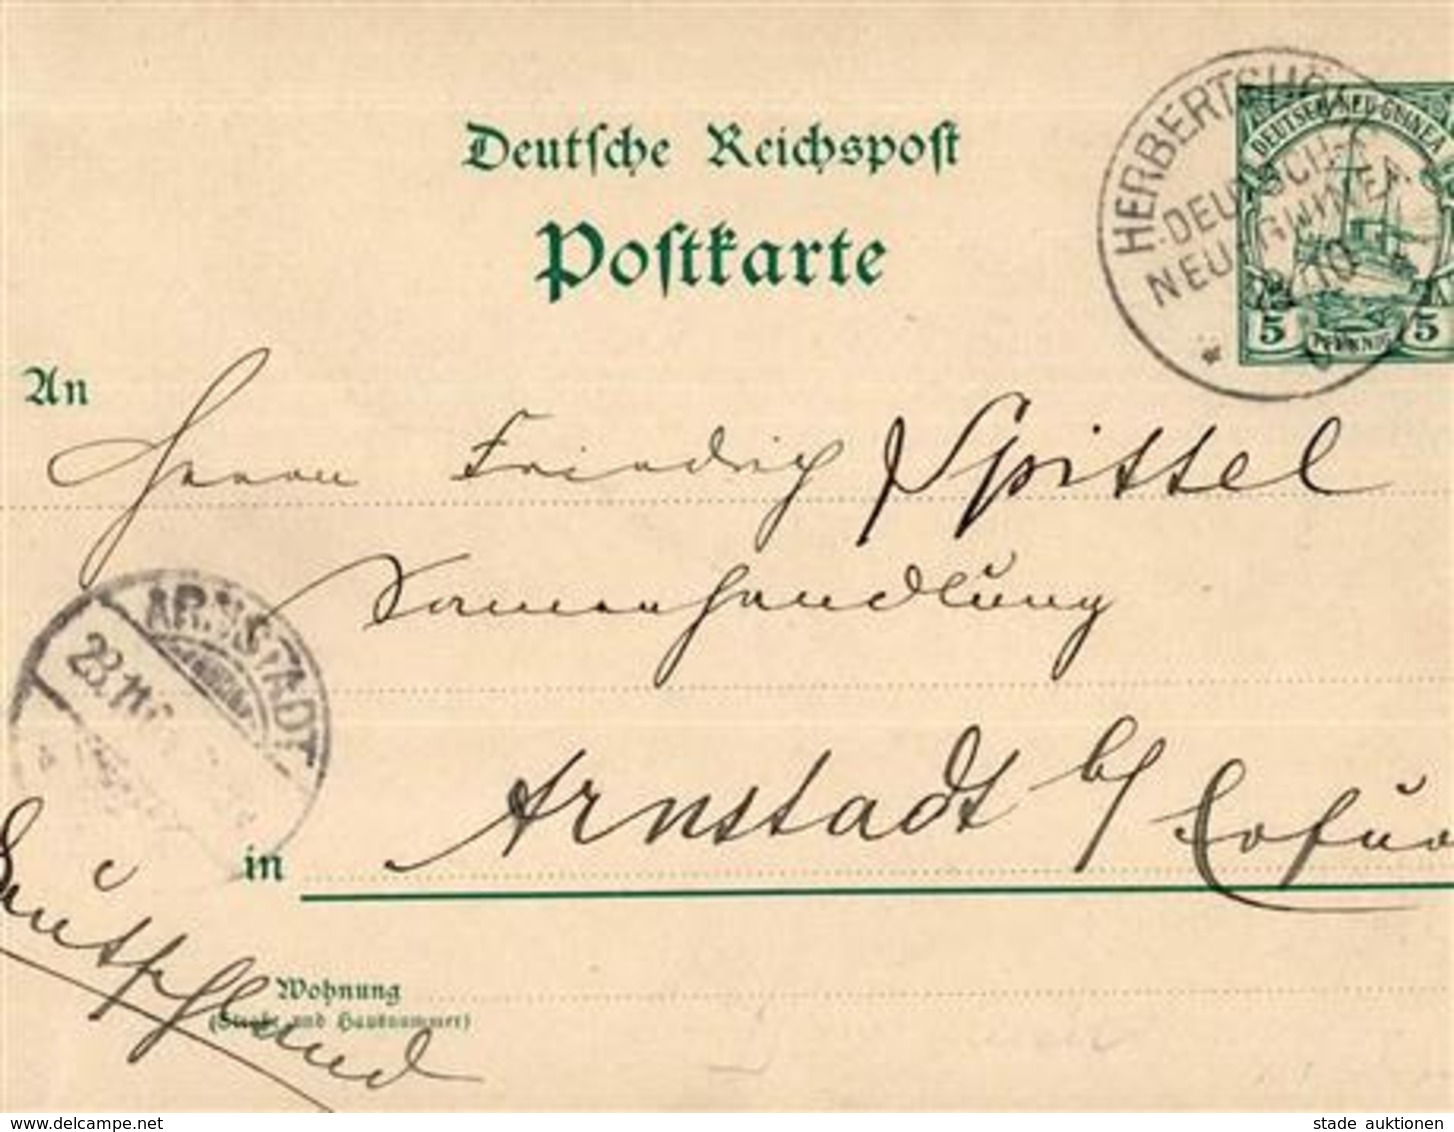 Deutsche Reichspost
Postkarte
HERBERTSHÖHE
DEUTSCH-
NEU-GWINEA
DEUTSCH-NEU-GUINEA
5 PFENNIG 5
An
Herrn Friedrich Spittel
Samenhandlung
ARNSTADT
23.11.
in Arnstadt b/ Erfurt
Deutschland
Wohnung
(Straße und Hausnummer)
delcampe.net
stade auktionen